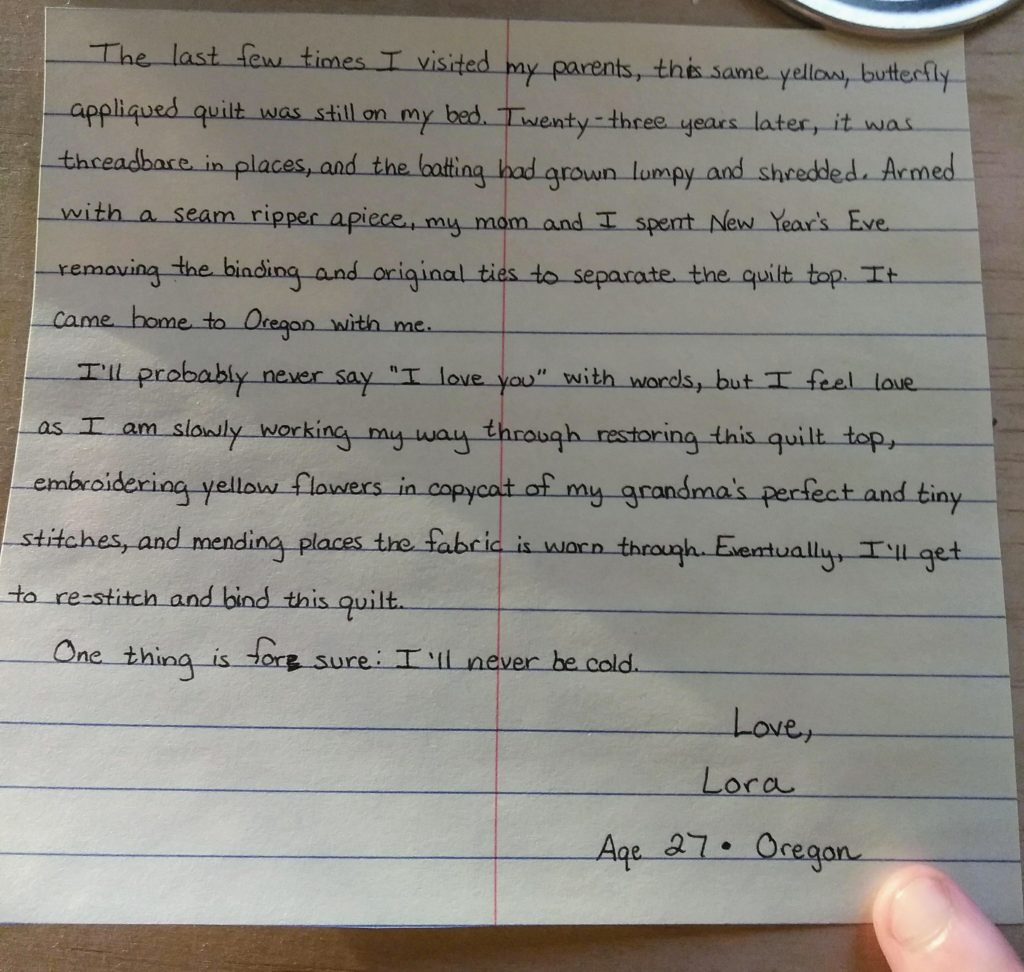 The last few times I visited my parents, this same yellow, butterfly
appliqued quilt was still on my bed. Twenty-three years later, it was
threadbare in places, and the batting had grown lumpy and shredded. Armed
with a seam ripper apiece, my mom and I spent New Year's Eve
removing the binding and original ties to separate the quilt top. It
came home to Oregon with me.
I'll probably never say "I love you" with words, but I feel love
as I am slowly working my way through restoring this quilt top,
embroidering yellow flowers in copycat of my grandma's perfect and tiny
stitches, and mending places the fabric is worn through. Eventually, I'll get
to re-stitch and bind this quilt.
One thing is for sure: I'll never be cold.
Love,
Lora
Age 27 • Oregon